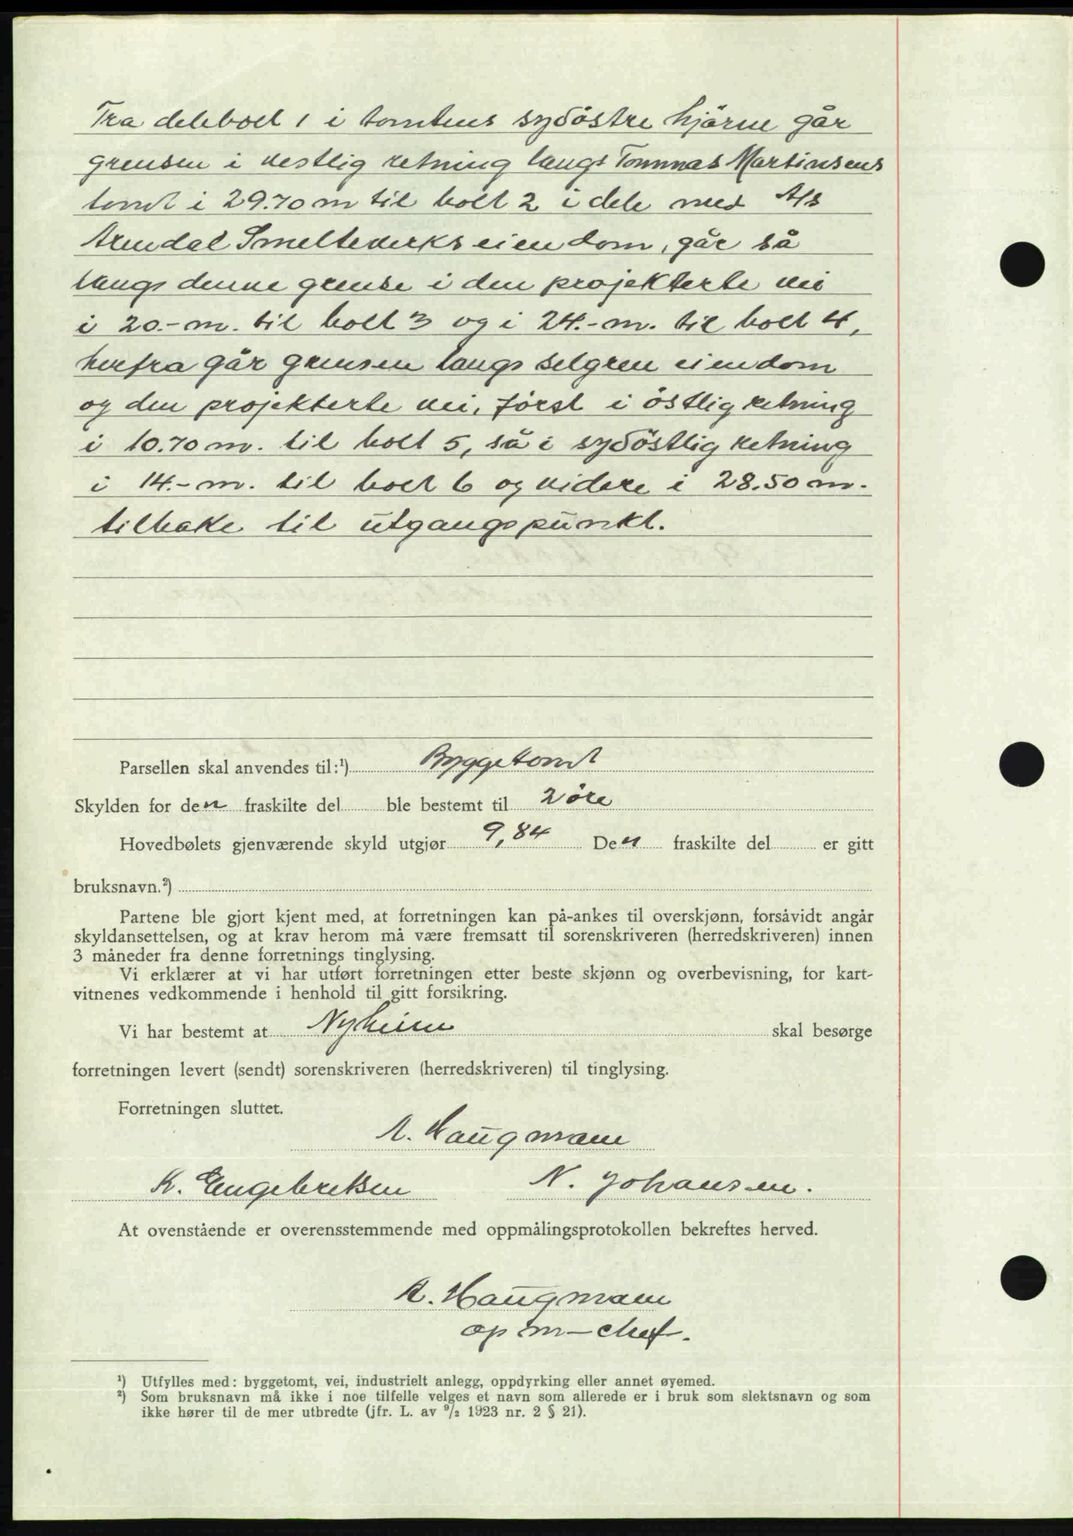 Fra delebolt 1 i tomtens sydöstre hjörne går
grensen i vestlig retning langs Tommas Martinsens
tomt i 29.70 m til bolt 2 i dele med A/s
Arendal Smelteverks eiendom, går så
langs denne grense i den projekterte vei
i 20.-m. til bolt 3 og i 24.-m. til bolt 4,
herfra går grensen langs selgren eiendom
og den projekterte vei, först i östlig retning
i 10.70 m. til bolt 5, så i sydöstlig retning
i 14.-m. til bolt 6 og videre i 28.50 m.
tilbake til utgangspunkt.
Parsellen skal anvendes til:¹) Byggetomt
Skylden for den fraskilte del ble bestemt til 2 øre
Hovedbølets gjenværende skyld utgjør 9,84 Den fraskilte del er gitt
bruksnavn.²)
Partene ble gjort kjent med, at forretningen kan på-ankes til overskjønn, forsåvidt angår
skyldansettelsen, og at krav herom må være fremsatt til sorenskriveren (herredskriveren) innen
3 måneder fra denne forretnings tinglysing.
Vi erklærer at vi har utført forretningen etter beste skjønn og overbevisning, for kart-
vitnenes vedkommende i henhold til gitt forsikring.
Vi har bestemt at Nyheim skal besørge
forretningen levert (sendt) sorenskriveren (herredskriveren) til tinglysing.
Forretningen sluttet.
A. Haugmann
K. Engebretsen N. Johansen.
At ovenstående er overensstemmende med oppmålingsprotokollen bekreftes herved.
A. Haugmann
op m-chef.
¹) Utfylles med: byggetomt, vei, industrielt anlegg, oppdyrking eller annet øyemed.
²) Som bruksnavn må ikke i noe tilfelle velges et navn som allerede er i bruk som slektsnavn og som
ikke hører til de mer utbredte (jfr. L. av ⁹/₂ 1923 nr. 2 § 21).